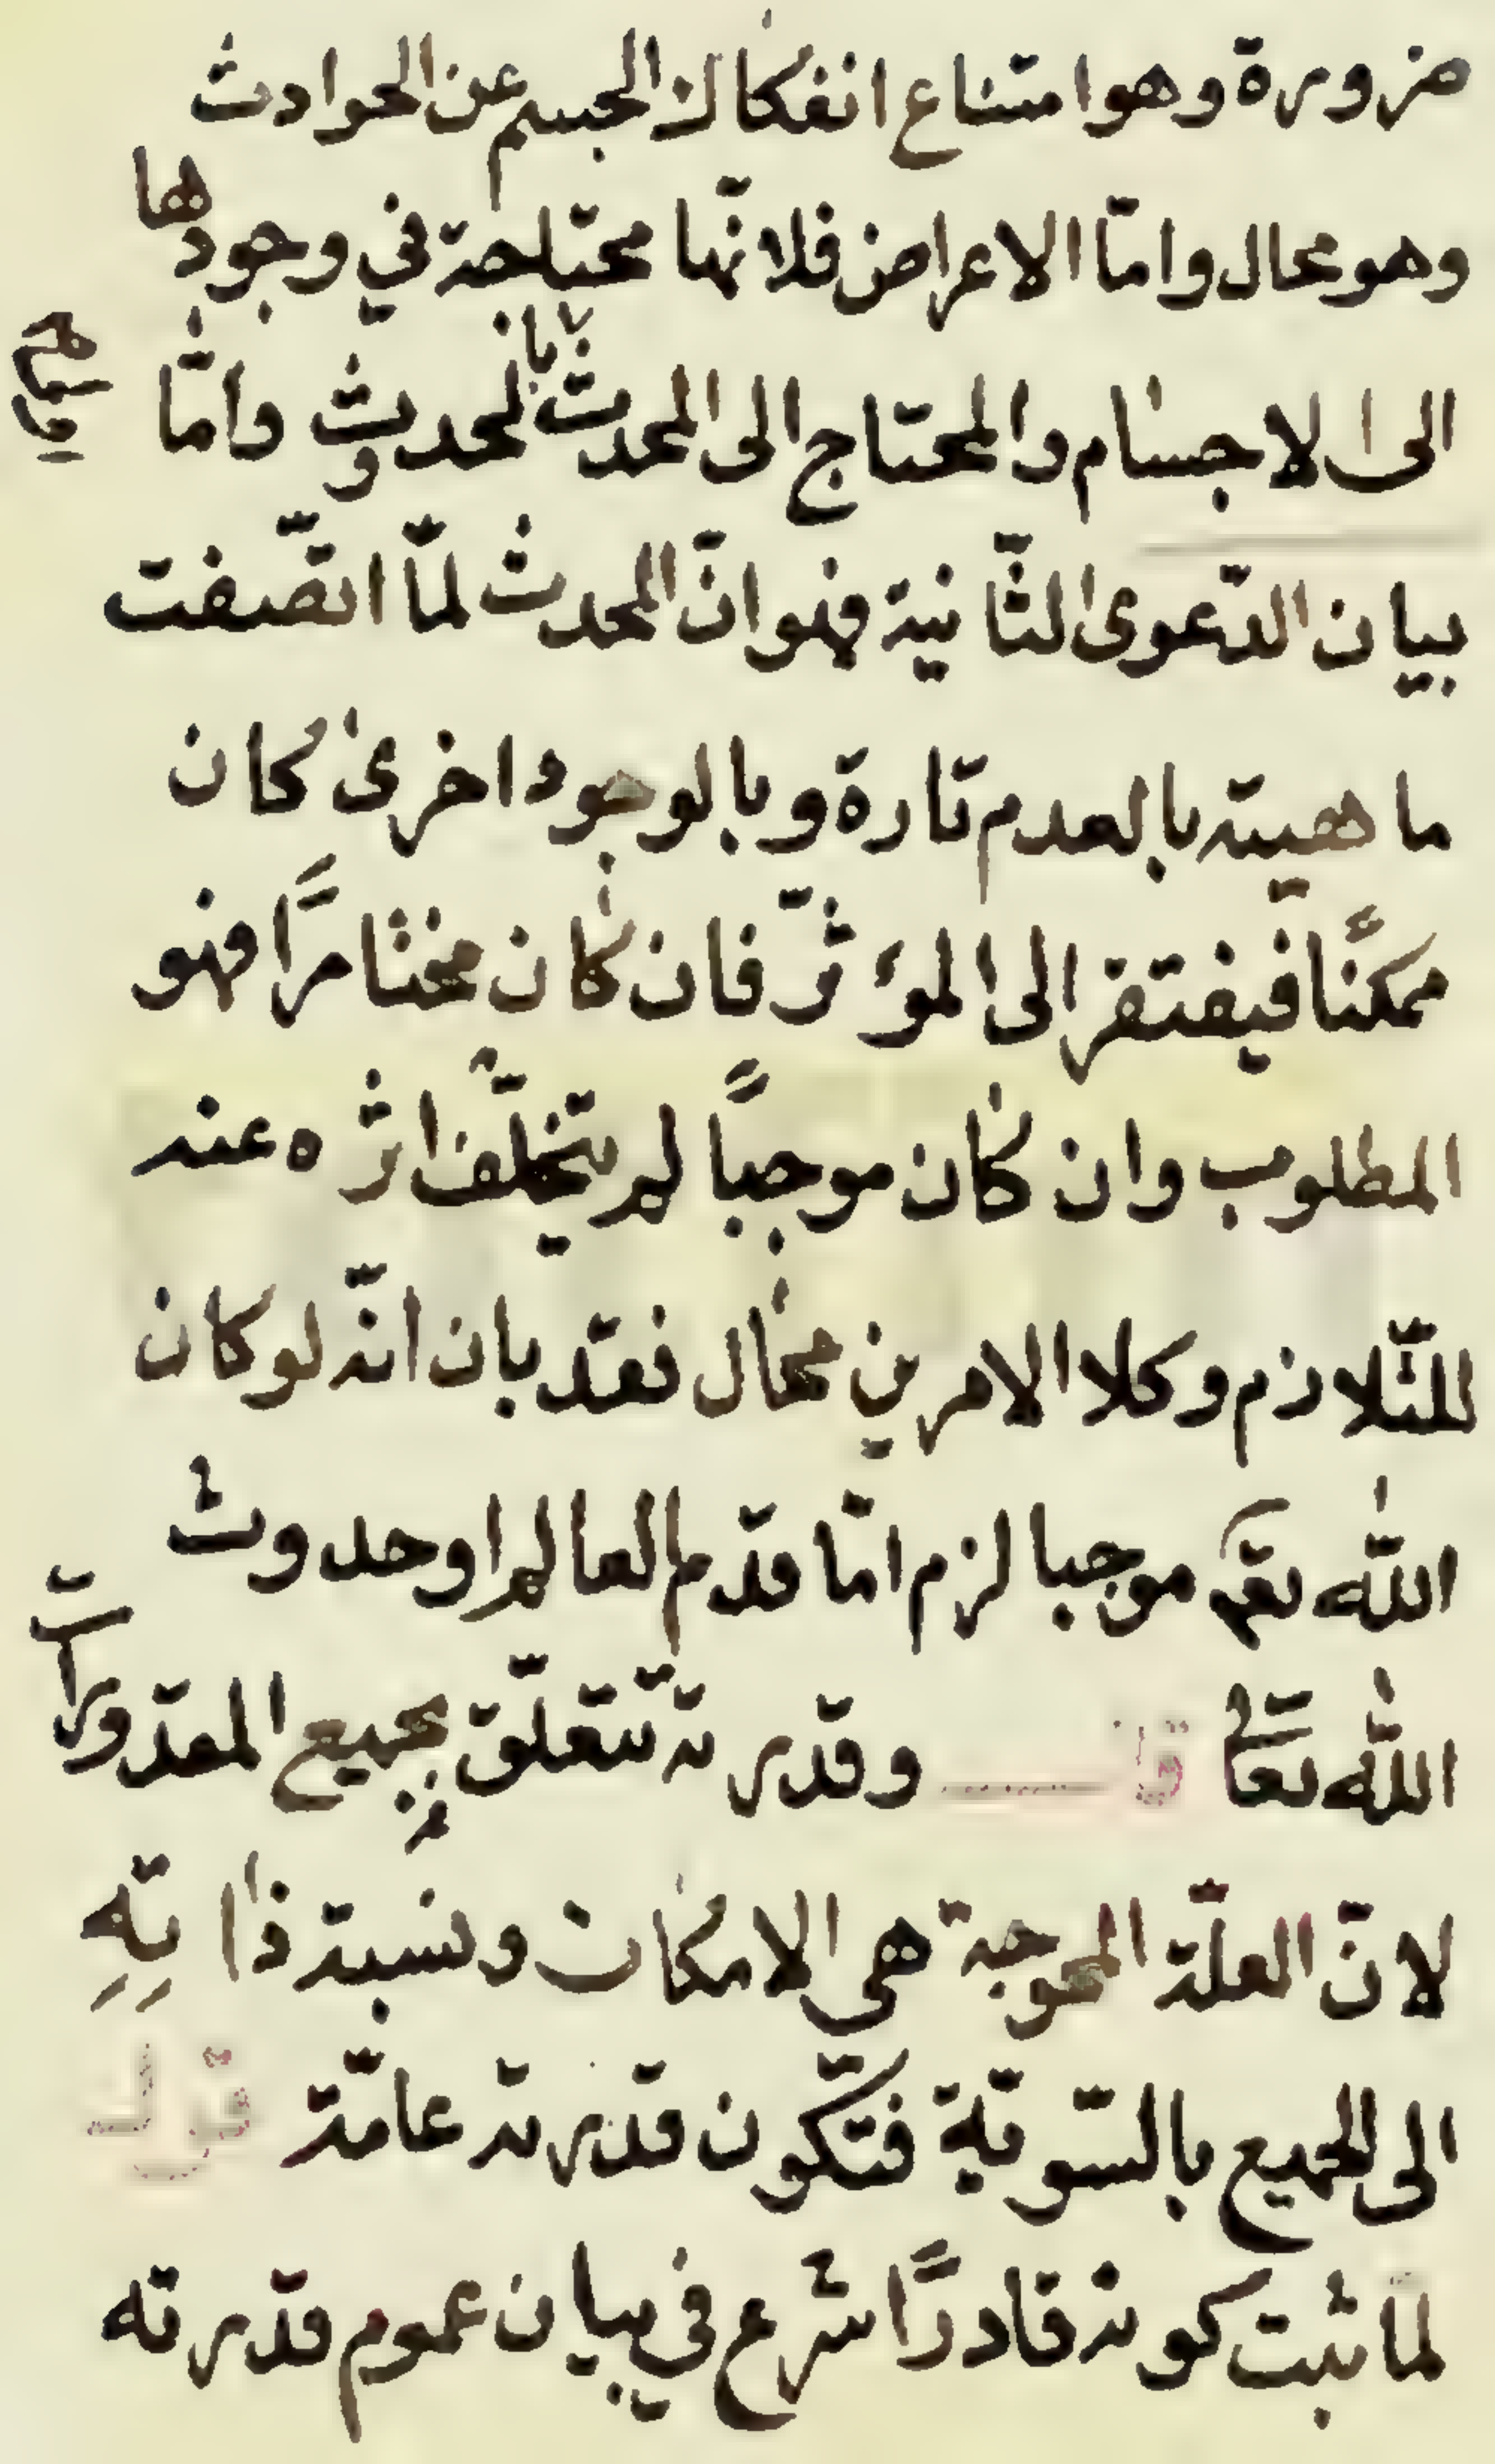 ضرورة وهو امتناع انفكاك الجسم عن الحوادث
وهو محال وامّا الاعراض فلانّها محتاجة في وجودها
الى الاجسام والمحتاج الى المحدث بالحدوث وامّا
بيان الدّعوى الثّانية فهو انّ المحدث لمّا اتّصفت
ماهيته بالعدم تارة وبالوجود اخرى كان
ممكنًا فيفتقر الى المؤثّر فان كان مختارًا فهو
المطلوب وان كان موجبًا لم يتخلّف اثره عنه
للتّلازم وكلا الامرين محال فقد بان انّه لو كان
اللّه تعم موجبا لزم امّا قدم العالم او حدوث
اللّه تعالى قال وقدرته تتعلّق بجميع المقدورات
لانّ العلّة المحوجة هي الامكان ونسبة ذاته
الى الجميع بالسّويّة فتكون قدرته عامّة
لمّا ثبت كونه قادرًا شرع في بيان عموم قدرته